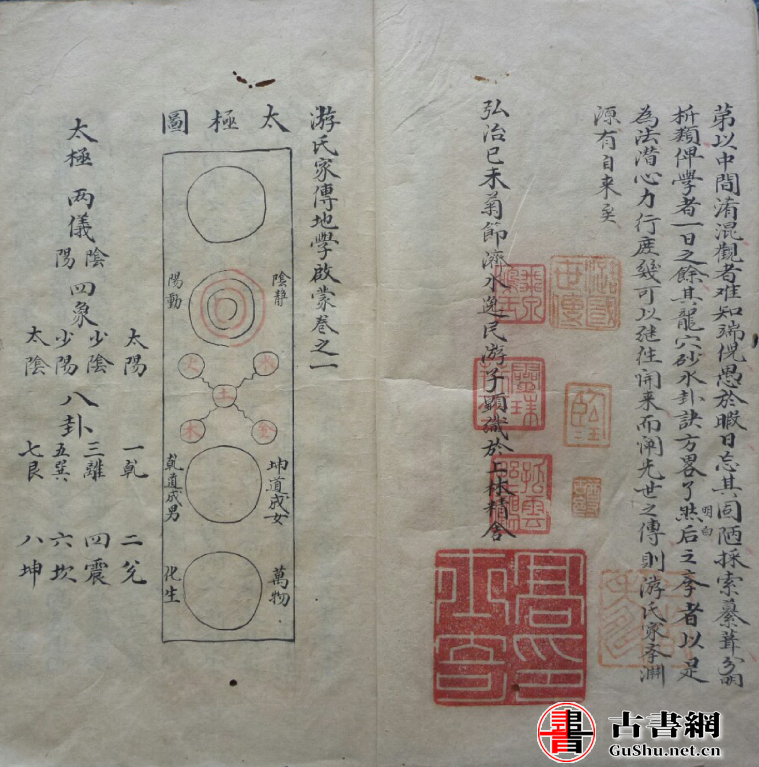 第以中間淆混觀者难知端倪愚於暇日忘其固陋採索纂葺分
析類俾學者一日之餘其龍穴砂水卦訣方畧了然后之李者以是
明白
為法潛心力行庶幾可以继往開来而闸先世之傳則游氏家李淵
源有自来矣
弘治己未菊節濟水逸民游子顯識於上林精舍
游氏家傳地學啟蒙卷之一
太極圖
陰靜
陽動
水
火
土
金
木
坤道成女
乾道成男
萬物
化生
太極 两儀 陰陽 四象 太陽 少陰 少陽 太陰 八卦 一乹 二兌 三離 四震 五巽 六坎 七艮 八坤
書 古書網
GuShu.net.cn